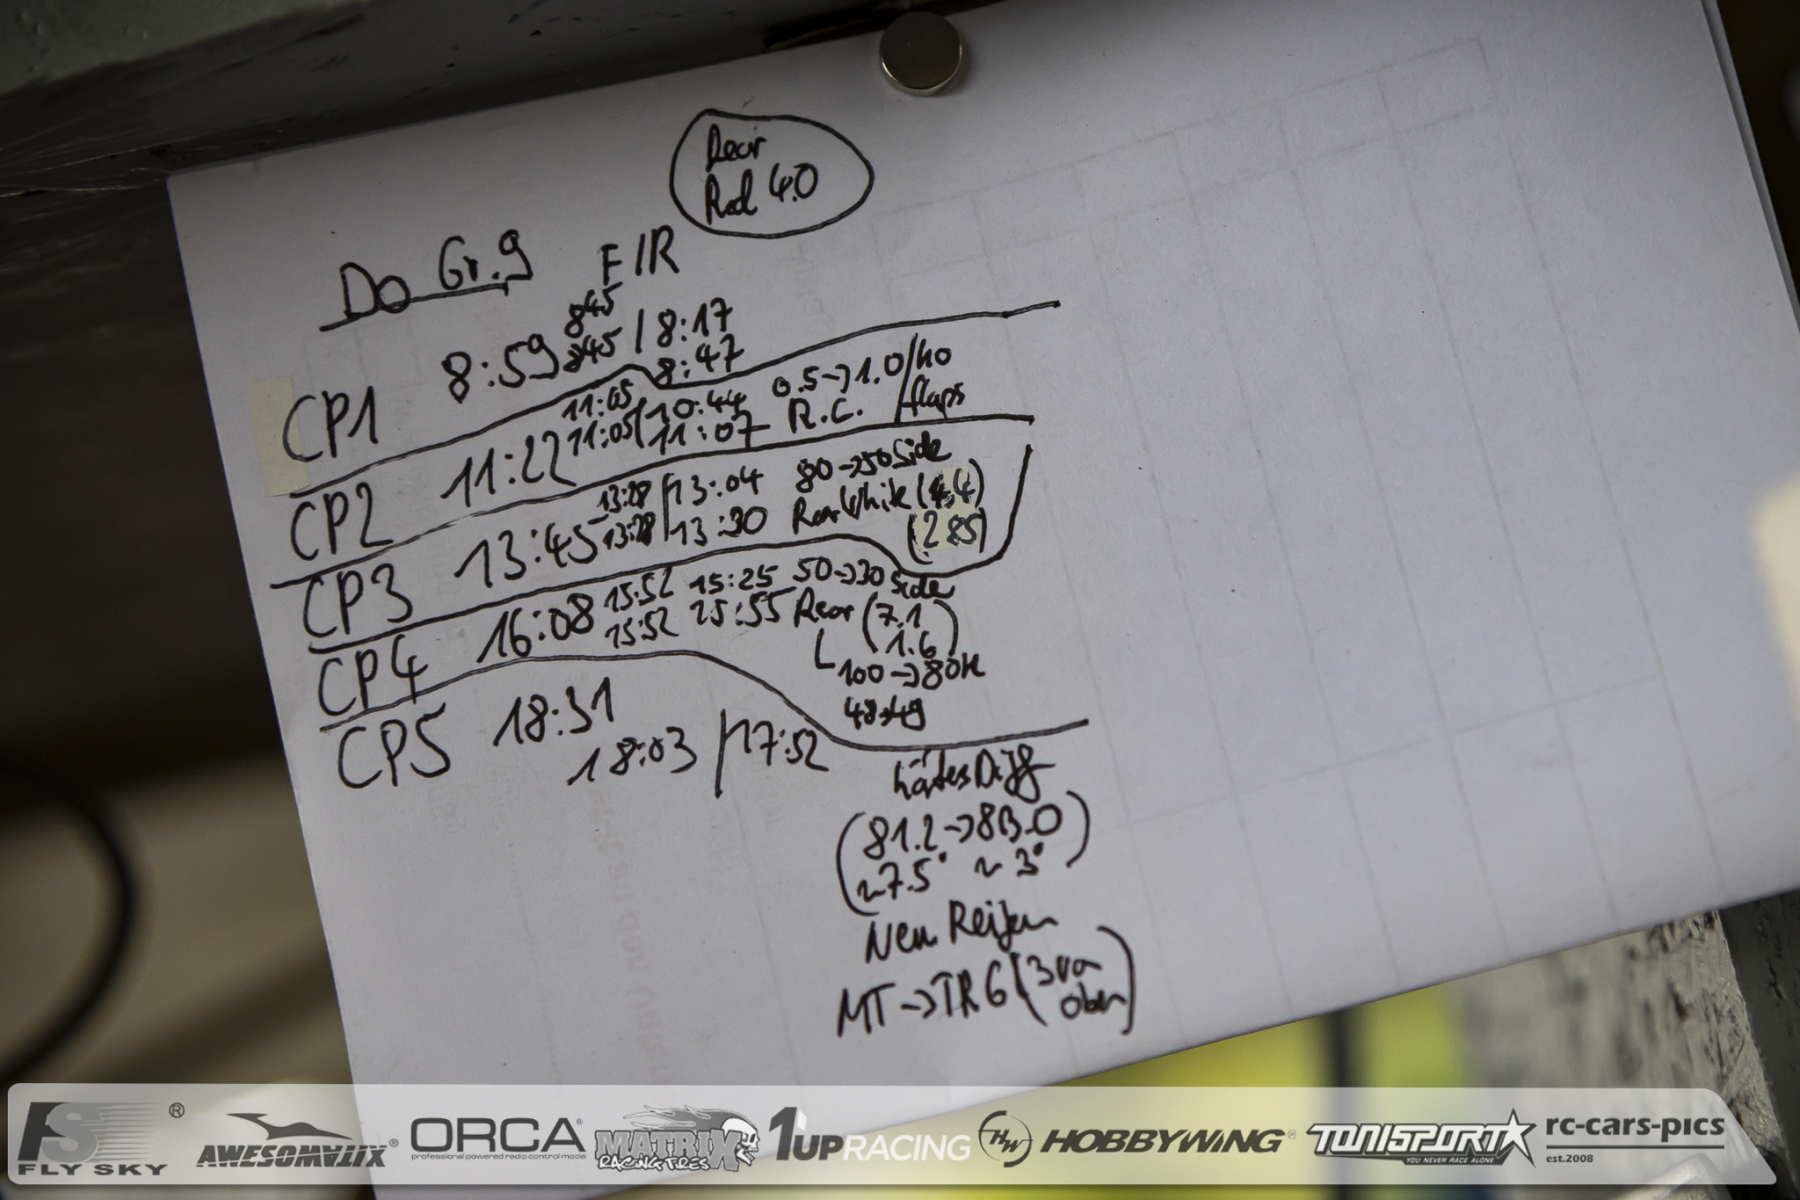 Rear
Rod 4.0
Do Gr.9 F/R
CP1 8:59 8:45 / 8:17
8:45 8:47
CP2 11:22 11:05 / 10:44 0.5→1.0 / ho
11:05 11:07 R.C. flaps
CP3 13:45 13:28 / 13:04 80→50 Side
13:28 13:30 Rear White (4,4)
(2 85)
CP4 16:08 15:52 15:25 50→30 Side
15:52 15:55 Rear (7.1)
(1.6)
100→80K
48→49
CP5 18:31
18:03 / 17:52
härtes Diff
(81.2→83.0
~7.5° ~3°)
Neu Reifen
MT→TR6 (3 von
oben)
FS®
FLY SKY
AWESOMATIX®
ORCA®
professional powered radio control model
MATRIX
RACING TIRES
1UP RACING
HW HOBBYWING®
TONISPORT
YOU NEVER RACE ALONE
rc-cars-pics
est.2008